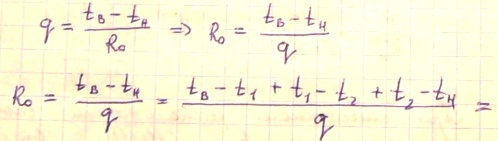 q = (t_в − t_н)/R₀ ⇒ R₀ = (t_в − t_н)/q
R₀ = (t_в − t_н)/q = (t_в − t₁ + t₁ − t₂ + t₂ − t_н)/q =